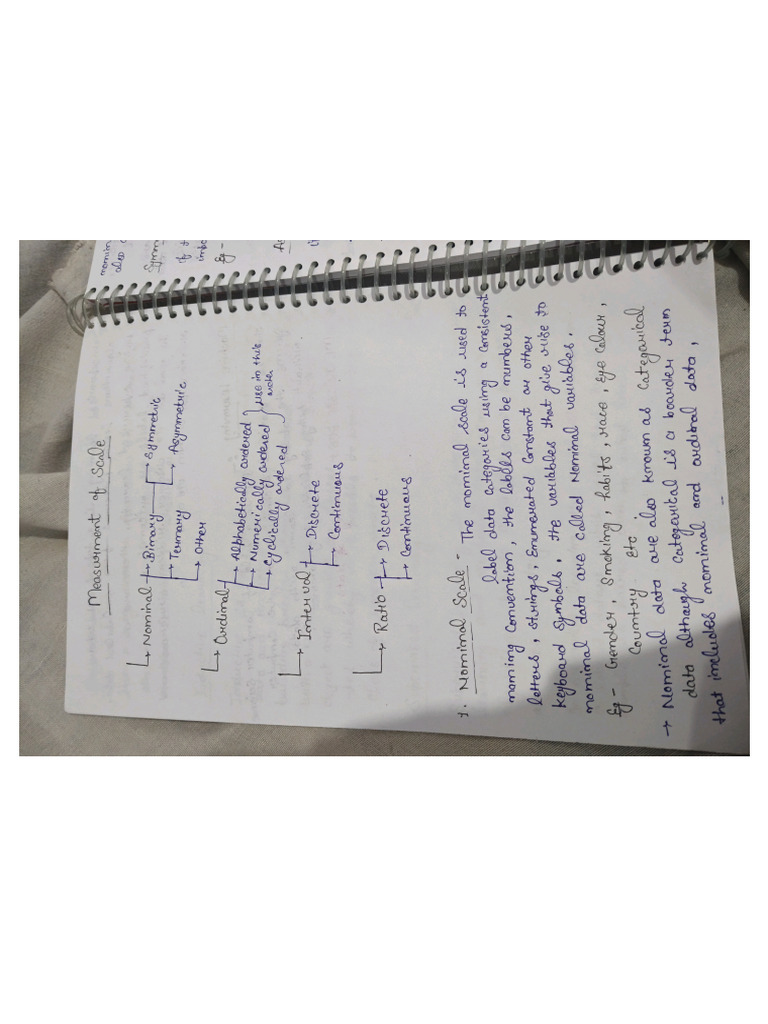 Measurment of Scale
Nominal → Binary → Symmetric
→ Asymmetric
→ Ternary
→ Other
→ Ordinal → Alphabetically ordered
→ Numerically ordered
→ Cyclically ordered
use in this
order
→ Interval → Discrete
→ Continuous
→ Ratio → Discrete
→ Continuous
1. Nominal Scale - The nominal scale is used to
label data categories using a consistent
naming convention, the labels can be numbers,
letters, strings, Enumerated constant or other
keyboard symbols. the variables that give rise to
nominal data are called Nominal variables.
Eg - Gender, Smoking, habits, race, eye colour,
Country etc
→ Nominal data are also known as Categorical
data although categorical is a boarder term
that includes nominal and ordinal data,
nomin
also
Symm
of t
imbo
Eg -